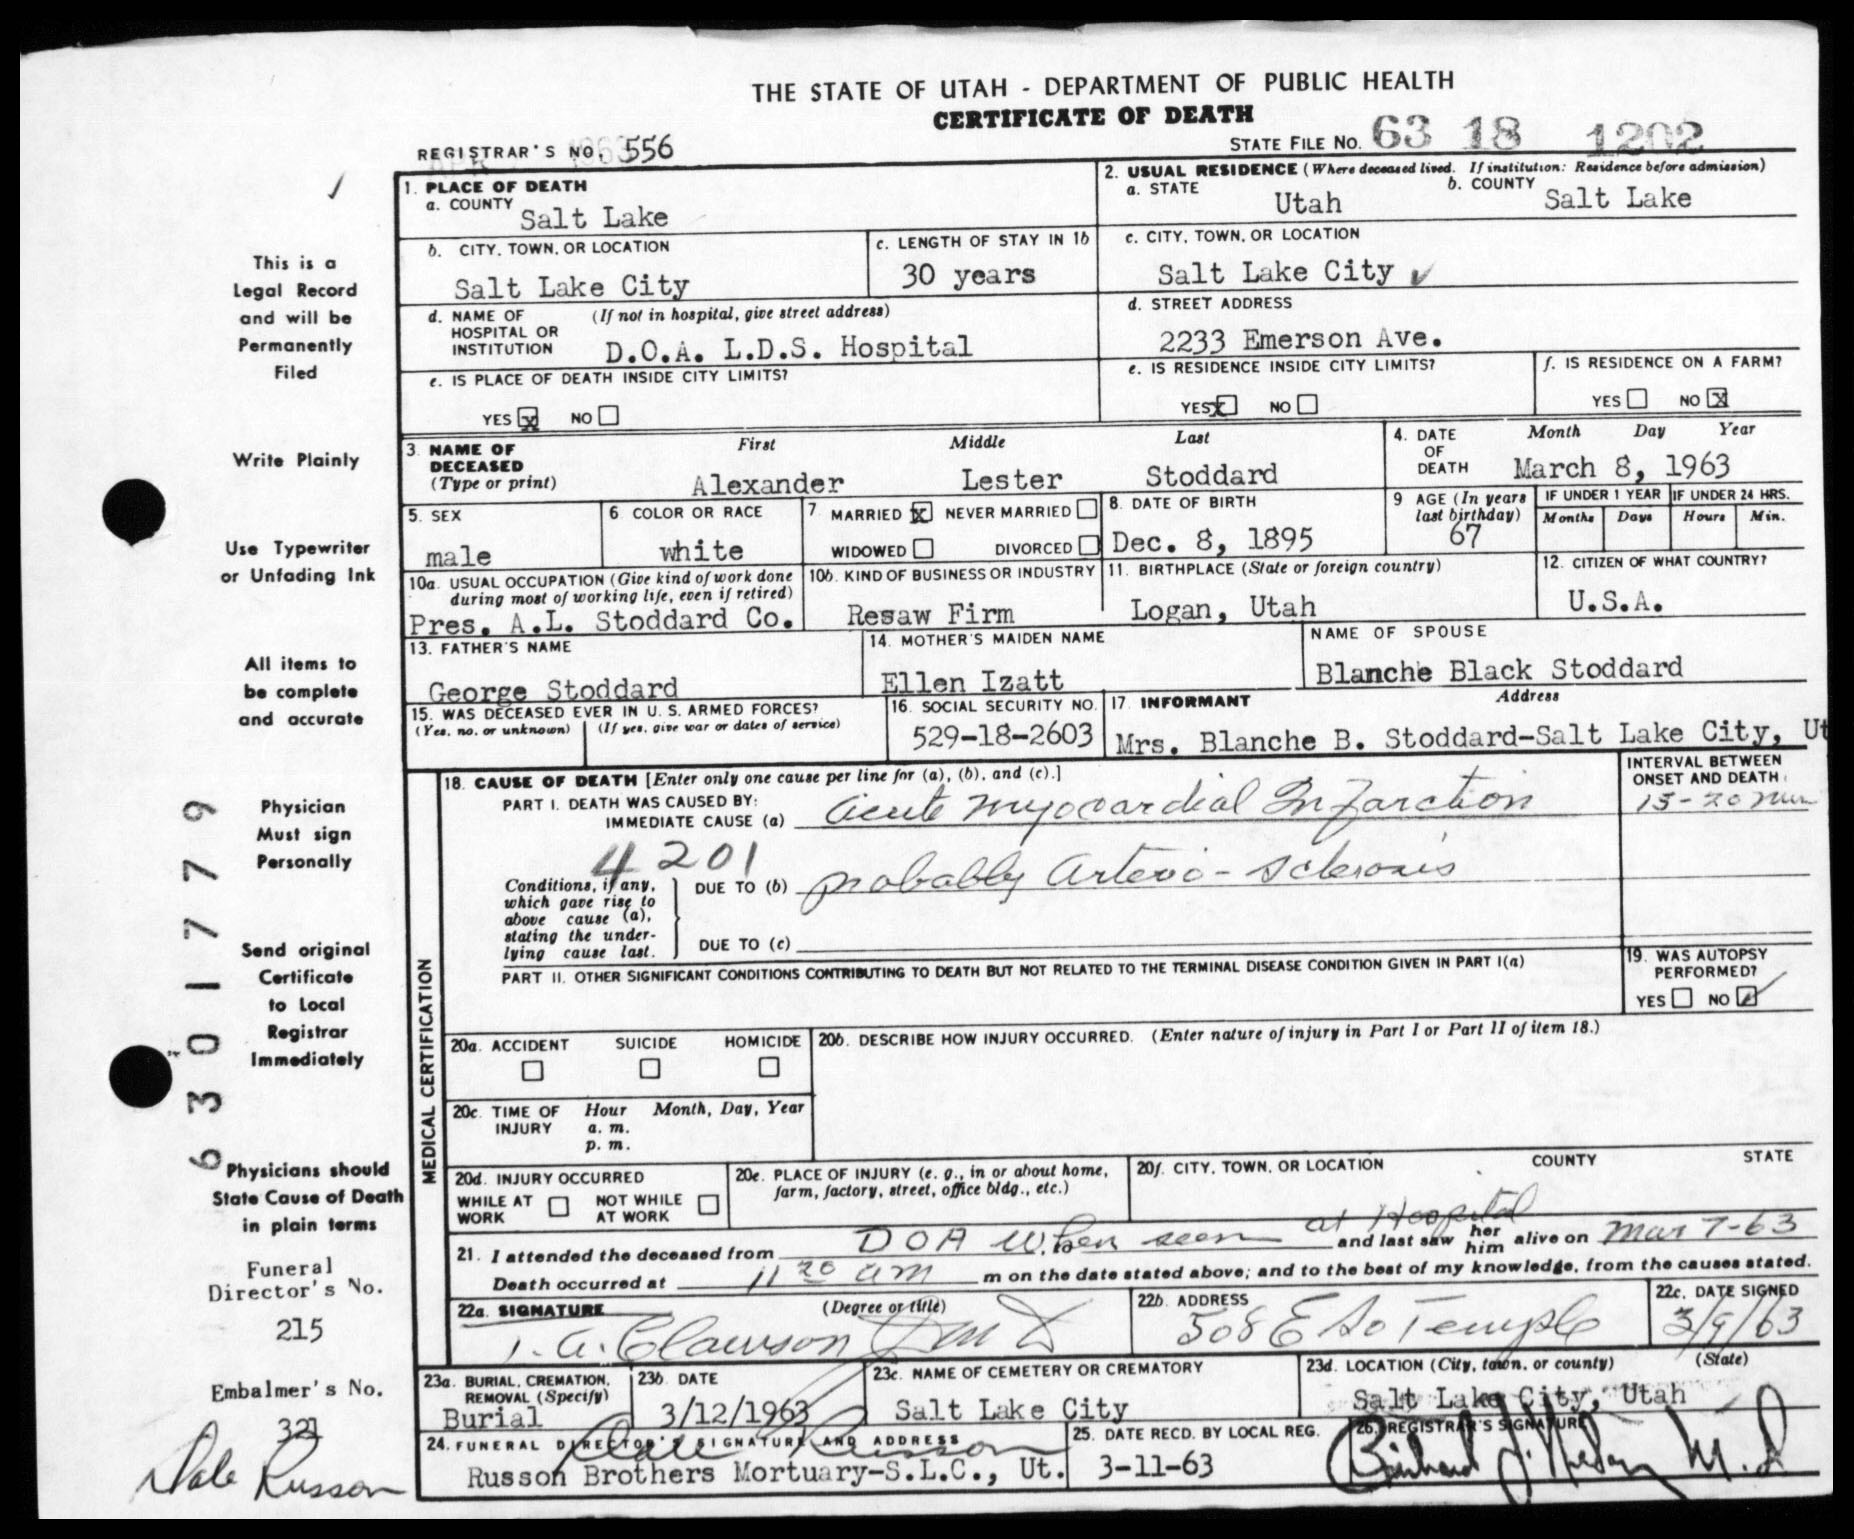 THE STATE OF UTAH - DEPARTMENT OF PUBLIC HEALTH
CERTIFICATE OF DEATH
REGISTRAR'S NO. 556
STATE FILE NO. 63 18 1202
1. PLACE OF DEATH
a. COUNTY Salt Lake
2. USUAL RESIDENCE (Where deceased lived. If institution: Residence before admission)
a. STATE Utah b. COUNTY Salt Lake
b. CITY, TOWN, OR LOCATION Salt Lake City
c. LENGTH OF STAY IN 1b 30 years
c. CITY, TOWN, OR LOCATION Salt Lake City
d. NAME OF HOSPITAL OR INSTITUTION (If not in hospital, give street address) D.O.A. L.D.S. Hospital
d. STREET ADDRESS 2233 Emerson Ave.
e. IS PLACE OF DEATH INSIDE CITY LIMITS?
YES x NO
e. IS RESIDENCE INSIDE CITY LIMITS?
YES x NO
f. IS RESIDENCE ON A FARM?
YES NO x
3. NAME OF DECEASED (Type or print)
First Middle Last
Alexander Lester Stoddard
4. DATE OF DEATH Month Day Year
March 8, 1963
5. SEX male
6. COLOR OR RACE white
7. MARRIED x NEVER MARRIED
WIDOWED DIVORCED
8. DATE OF BIRTH Dec. 8, 1895
9 AGE (In years last birthday) 67
IF UNDER 1 YEAR IF UNDER 24 HRS.
Months Days Hours Min.
10a. USUAL OCCUPATION (Give kind of work done during most of working life, even if retired)
Pres. A.L. Stoddard Co.
10b. KIND OF BUSINESS OR INDUSTRY
Resaw Firm
11. BIRTHPLACE (State or foreign country)
Logan, Utah
12. CITIZEN OF WHAT COUNTRY?
U.S.A.
13. FATHER'S NAME
George Stoddard
14. MOTHER'S MAIDEN NAME
Ellen Izatt
NAME OF SPOUSE
Blanche Black Stoddard
15. WAS DECEASED EVER IN U. S. ARMED FORCES?
(Yes, no, or unknown) (If yes, give war or dates of service)
16. SOCIAL SECURITY NO.
529-18-2603
17. INFORMANT Address
Mrs. Blanche B. Stoddard-Salt Lake City, Ut
18. CAUSE OF DEATH [Enter only one cause per line for (a), (b), and (c).]
PART I. DEATH WAS CAUSED BY:
IMMEDIATE CAUSE (a) Acute Myocardial Infarction
INTERVAL BETWEEN ONSET AND DEATH
15-20 min
4201
Conditions, if any, which gave rise to above cause (a), stating the underlying cause last.
DUE TO (b) probably Arterio-sclerosis
DUE TO (c)
PART II. OTHER SIGNIFICANT CONDITIONS CONTRIBUTING TO DEATH BUT NOT RELATED TO THE TERMINAL DISEASE CONDITION GIVEN IN PART I(a)
19. WAS AUTOPSY PERFORMED?
YES NO
MEDICAL CERTIFICATION
20a. ACCIDENT SUICIDE HOMICIDE
20b. DESCRIBE HOW INJURY OCCURRED. (Enter nature of injury in Part I or Part II of item 18.)
20c. TIME OF INJURY Hour Month, Day, Year
a. m.
p. m.
20d. INJURY OCCURRED
WHILE AT WORK NOT WHILE AT WORK
20e. PLACE OF INJURY (e. g., in or about home, farm, factory, street, office bldg., etc.)
20f. CITY, TOWN, OR LOCATION COUNTY STATE
21. I attended the deceased from DOA When seen at Hospital and last saw her him alive on Mar 7-63
Death occurred at 11 20 am m on the date stated above; and to the best of my knowledge, from the causes stated.
22a. SIGNATURE (Degree or title)
Clawson M D
22b. ADDRESS
508 E So Temple
22c. DATE SIGNED
3/9/63
23a. BURIAL, CREMATION, REMOVAL (Specify)
Burial
23b. DATE
3/12/1963
23c. NAME OF CEMETERY OR CREMATORY
Salt Lake City
23d. LOCATION (City, town, or county) (State)
Salt Lake City, Utah
24. FUNERAL DIRECTOR'S SIGNATURE AND ADDRESS
Dale Russon
Russon Brothers Mortuary-S.L.C., Ut.
25. DATE RECD. BY LOCAL REG.
3-11-63
26. REGISTRAR'S SIGNATURE
M.D
This is a
Legal Record
and will be
Permanently
Filed
Write Plainly
Use Typewriter
or Unfading Ink
All items to
be complete
and accurate
Physician
Must sign
Personally
Send original
Certificate
to Local
Registrar
Immediately
Physicians should
State Cause of Death
in plain terms
Funeral
Director's No.
215
Embalmer's No.
321
Dale Russon
6301779